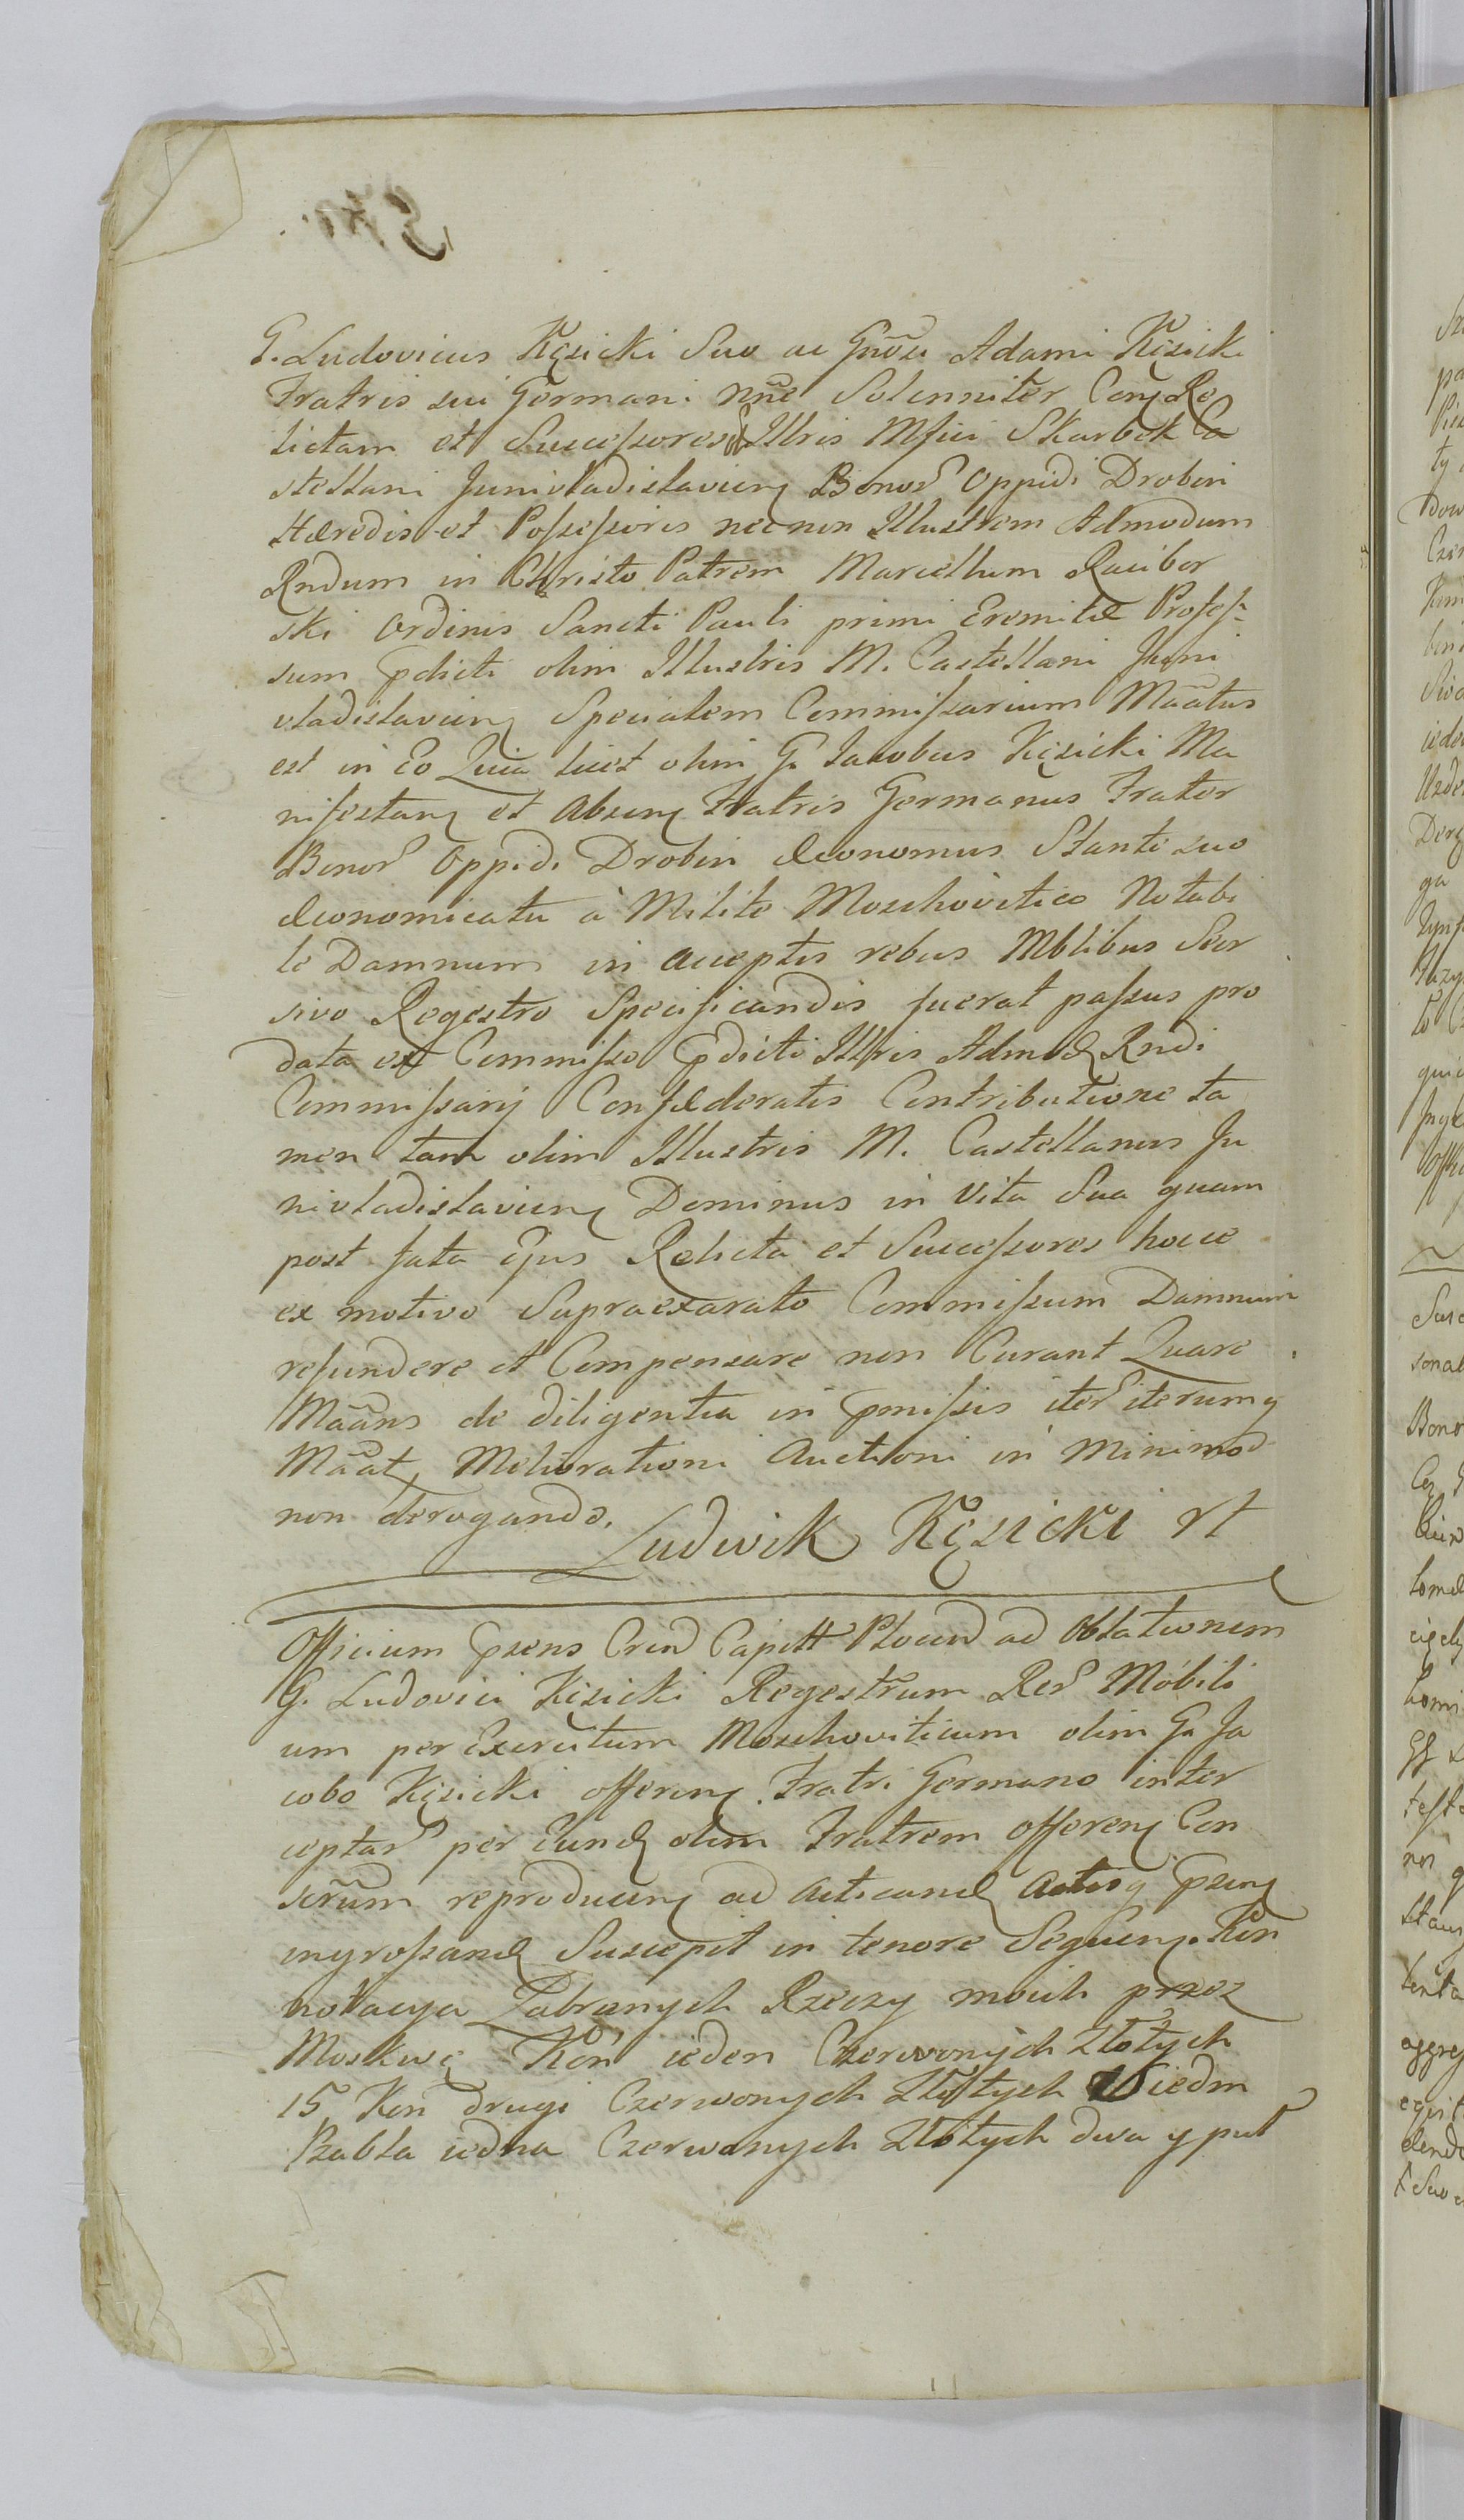 G. Ludovicus Kęsicki Suo ac Gnosi Adami Kęsicki
Fratris sui Germani nne Solenniter Con Re
lictam et Successores Illris Mfici Skarbek Ca
stellani Junivladislavien Bonor Oppidi Drobin
Hæredis et Possessoris necnon Illustrem Admodum
Rndum in Christo Patrem Marcellum Racibor
ski Ordinis Sancti Pauli primi Eremitæ Profes-
sum pdicti olim Illustris M. Castellani Juni
vladislavien Specialem Commissarium Maatus
est in Eo Quia licet olim G. Jacobus Kęsicki Ma
nifestan et Absen Fratris Germanus Frater
Bonor Oppidi Drobin Œconomus Stante suo
Œconomicatu à Milite Moschovitico Notabi
le Damnum in acceptis rebus Mblibus Seor
sivo Regestro Specificandis fuerat passus pro
data ex Commisso pdicti Illris Admod Rndi
Commissarij Confæderatis Contributione ta
men tam olim Illustris M. Castellanus Ju
nivladislavien Dominus in Vita Sua quam
post fata Ejus Relicta et Successores hocce
ex motivo Supraexarato Commissum Damnum
refundere et Compensare non Curant Quare
Maans de diligentia in pmissis iter iterumq
Maat, Meliorationi Auctioni in Minimo
non derogando.
Ludwik Kęsicki rt
Officium psens Cren Capitt Plocen ad Oblationem
G. Ludovici Kęsicki Regestrum Rer Mobili
um per Exercitum Moschoviticum olim G. Ja
cobo Kęsicki offeren Fratri Germano inter
ceptar per Eund olim Fratrem offeren Con
scrum reproducen ad acticand actisq psen
ingrossand Suscepit in tenore Sequen. Kon
notacya Zabranych Rzeczy moich przez
Moskwę Kon ieden Czerwonych Złotych
15 Kon drugi Czerwonych Złotych Siedm
Szabla iedna Czerwonych Złotych dwa y puł